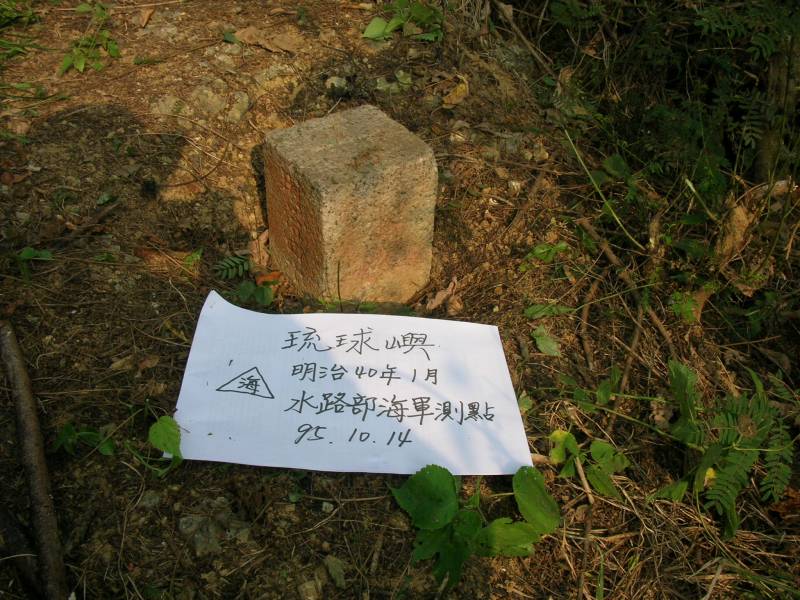 琉球嶼
海
明治40年1月
水路部海軍測點
95.10.14